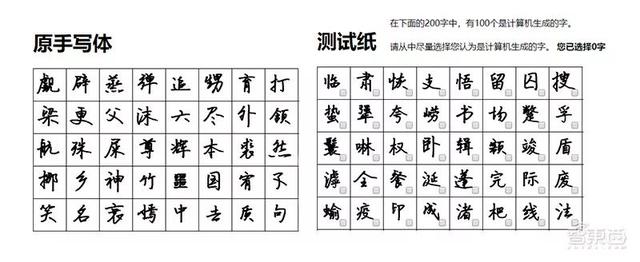 原手写体
觑 辟 燕 弹 追 甥 育 打
梁 更 父 沫 六 尽 外 领
航 殊 尿 尊 辉 本 裘 然
挪 乡 神 竹 噩 国 宵 予
笑 名 哀 嫣 中 去 质 句
测试纸
在下面的200字中，有100个是计算机生成的字。
请从中尽量选择您认为是计算机生成的字。 您已选择0字
临 肃 恢 支 悟 留 囚 搜
蛰 犟 夸 崂 书 场 蹩 孚
鬟 啉 权 卧 辑 颖 竣 盾
滤 全 餐 涎 蓬 完 际 废
蝓 疫 印 成 渚 杷 线 法
智东西